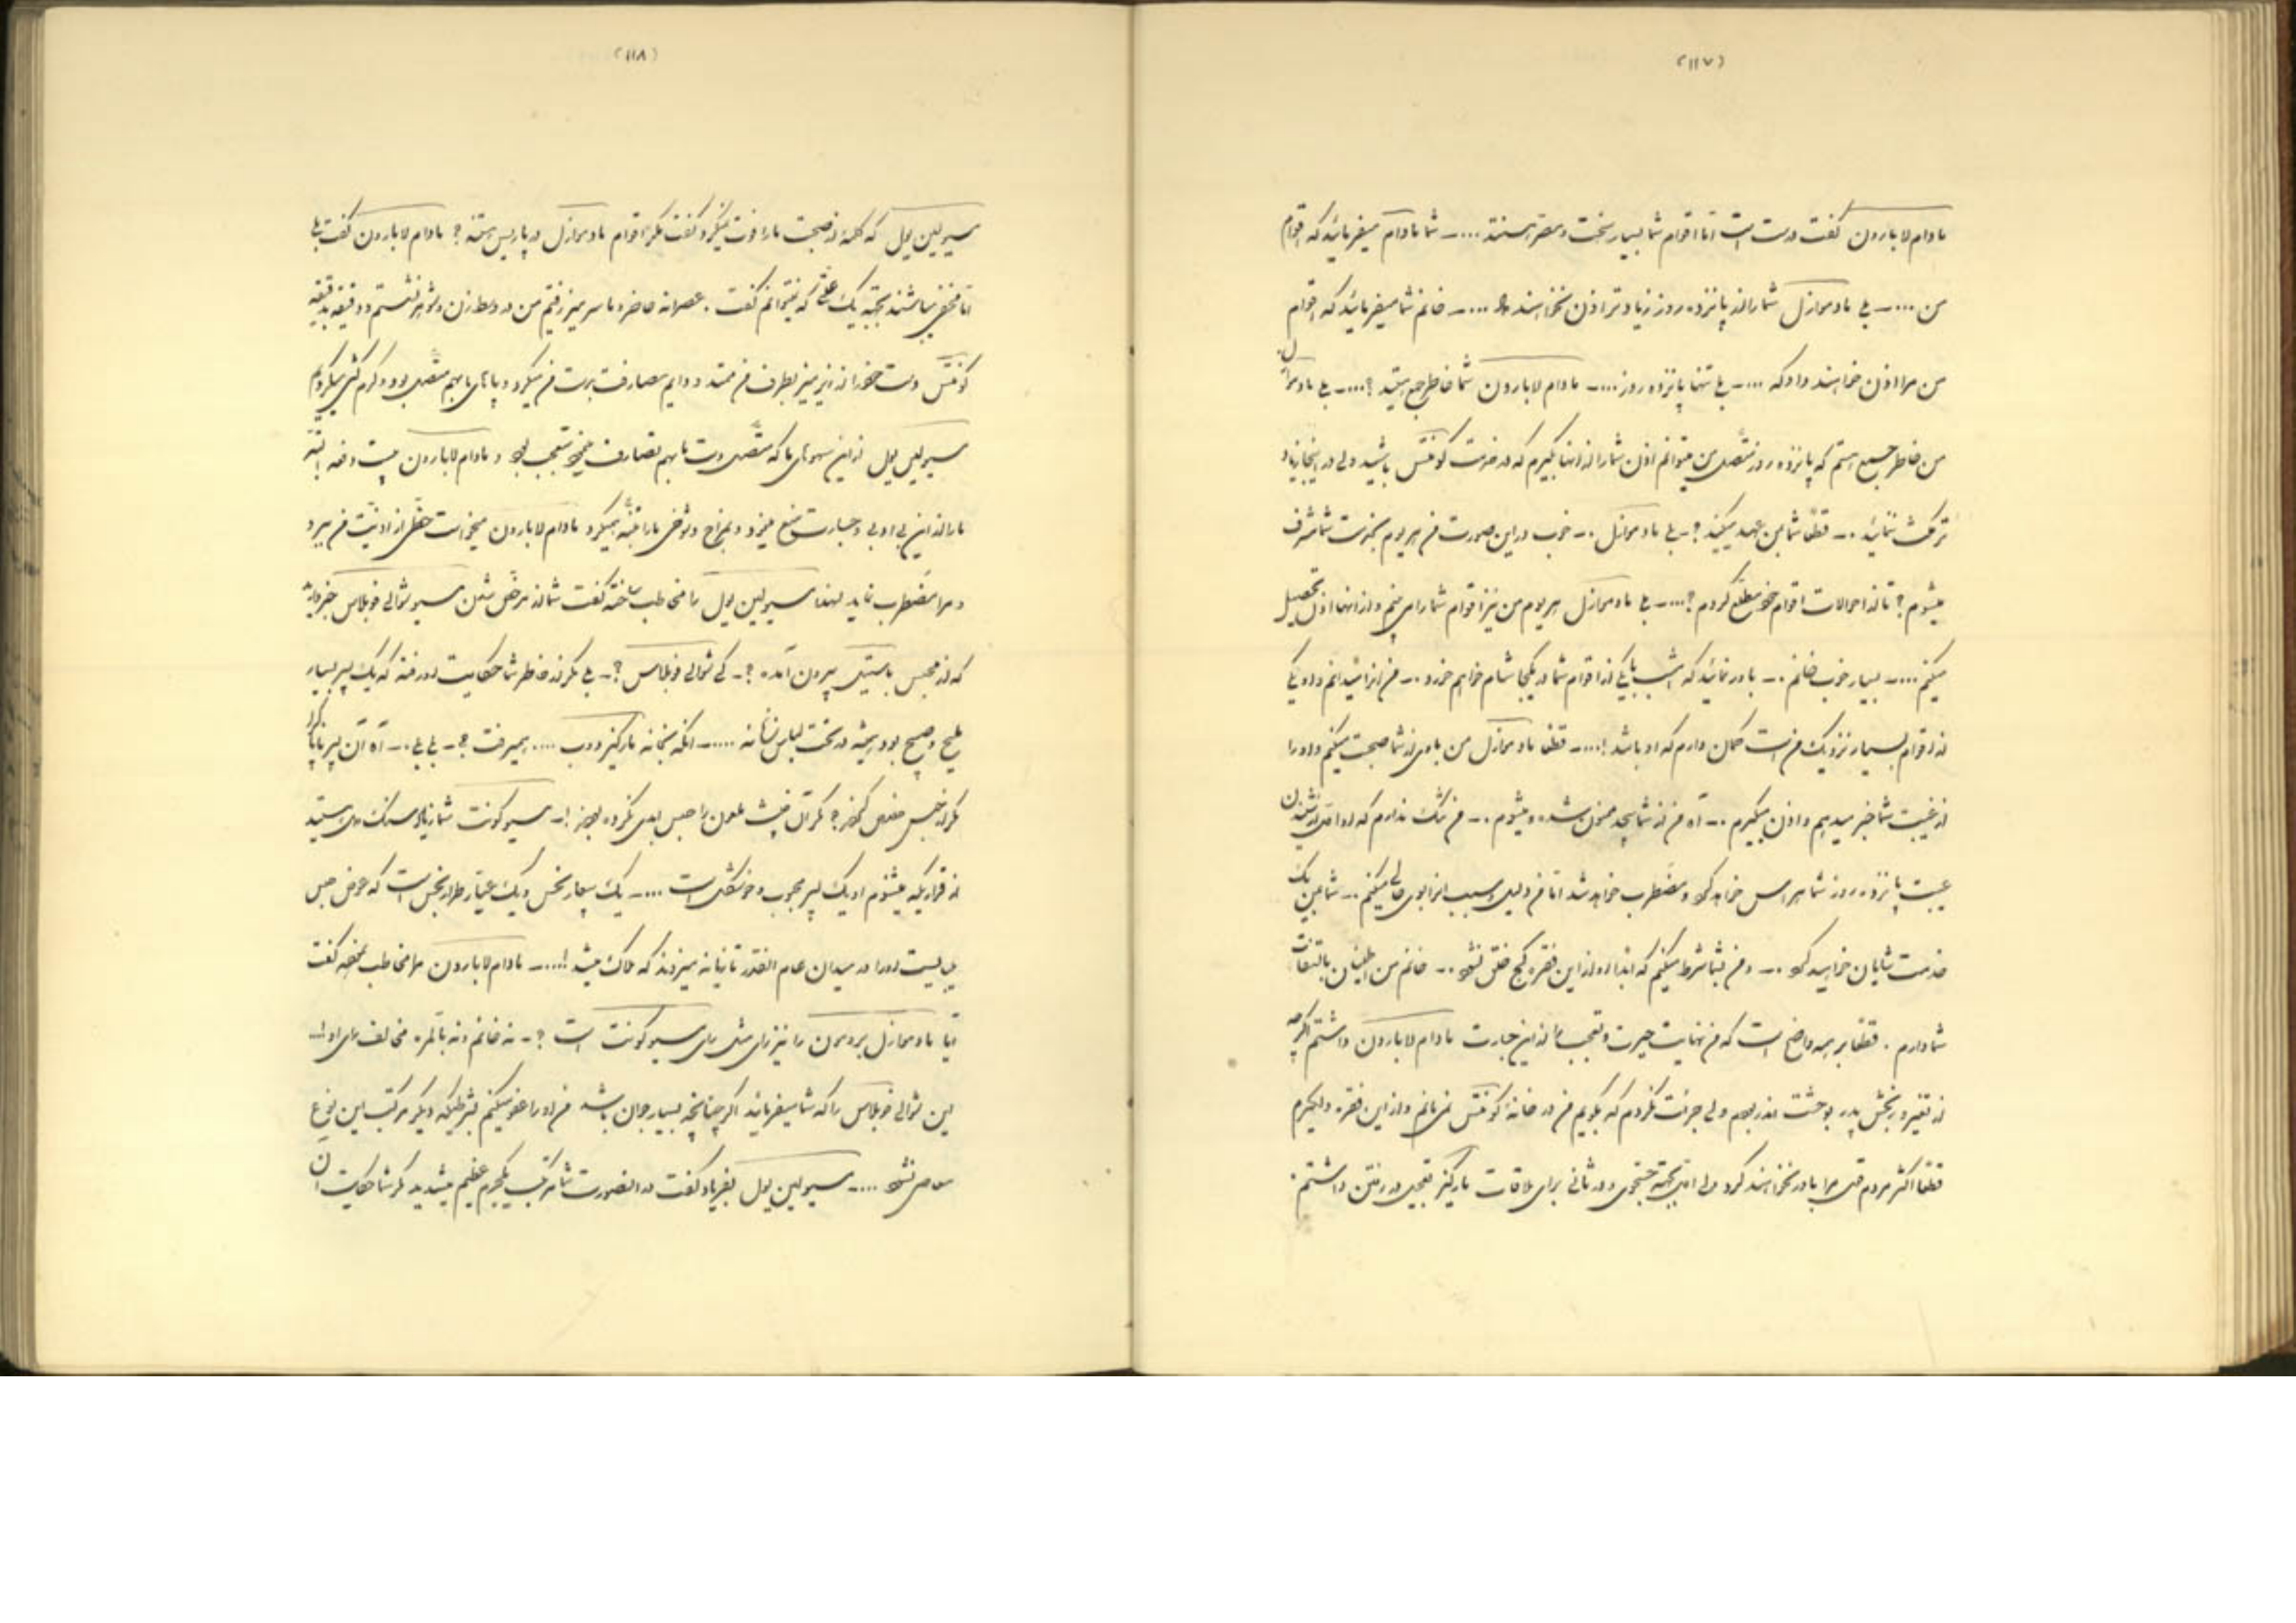 (۱۱۷)
مادام لابارون گفت درست است اما اقوام شما بسیار سخت و مقر هستند .... ـ شما مادام میفرمائید که اقوام
من .... ـ بلی مادموازل شما را از پانزده روز زیادتر اذن نخواهند داد .... ـ خانم شما میفرمائید که اقوام
من مرا اذن خواهند داد که .... ـ بلی تنها پانزده روز .... ـ مادام لابارون شما خاطر جمع هستید ؟ .... ـ بلی مادموازل
من خاطر جمع هستم که پانزده روز متصل من میتوانم اذن شما را از آنها بگیرم که در خدمت کونتس باشید ولی در اینجا زیاد
ترکث ننمائید . ـ قطعا شما بمن عهد میکنید ؟ ـ بلی مادموازل . ـ خوب در این صورت من هر یوم بخدمت شما مشرف
میشوم ؟ تا از احوالات اقوام خود مطلع گردم ؟ .... ـ بلی مادموازل هر یوم من نیز اقوام شما را می بینم و از آنها اذن تحصیل
میکنم .... ـ بسیار خوب خانم . ـ باور نمائید که امشب با یکی از اقوام شما در یکجا شام خواهم خورد . ـ من او را نمیدانم ولی یکی
از اقوام بسیار نزدیک من است گمان دارم که او باشد ! .... ـ قطعا مادموازل من با وی از شما صحبت میکنم و او را
از غیبت شما خبر میدهم و اذن میگیرم . ـ آه من از شما بیحد ممنون شده و میشوم . ـ من شک ندارم که او از شنیدن
غیبت پانزده روز شما هراس خواهد کرد و مضطرب خواهد شد اما من دلیل و سبب او را بوی حالی میکنم . ـ شما بمن یک
خدمت شایان خواهید کرد . ـ و من بشما شرط میکنم که ابدا او از این فقره کج خلق نشود . ـ خانم من اطمینان بالتفات
شما دارم . قطعا بر همه واضح است که من نهایت حیرت و تعجب را از این جسارت مادام لابارون داشتم اگرچه
از تغیر و رنجش پدر بوحشت اندر بودم ولی جرئت نکردم که بگویم من در خانه کونتس نمی مانم و از این فقره دلگیرم
قطعا اکثر مردم قول مرا باور نخواهند کرد ولی اولا بجهة و در ثانی برای ملاقات مارکیز تعجیل در رفتن داشتم .
(۱۱۸)
مسیو لیبن یول که کلمه از صحبت ما را فوت نمیکرد گفت مگر اقوام مادموازل در پاریس هستند ؟ مادام لابارون گفت بلی
اما مخفی میباشند بجهة یک علتی که نمیتوانم گفت . عصرانه حاضر و ما سر میز رفتیم من در وسط زن و شوهر نشستم و دقیقه بدقیقه
کونتس دست خود را از زیر میز بطرف من ممتد و دایم مصادف بدست من میکرد و پاهای ما بهم متصل بود
مسیو لیبن یول از این که متصل دست ما بهم تصادف مینمود متعجب بود و مادام لابارون بیست دفعه البته
ما را از این بی ادبی و جسارت منع مینمود و بمزاح و شوخی ما را تنبیه میکرد مادام لابارون میخواست حظی از اذیت من ببرد
و مرا مضطرب نماید لهذا مسیو لیبن یول را مخاطب ساخته گفت شما از مرخص شدن مسیو شوالی فوبلاس خبر دارید
که از محبس باستیل بیرون آمده ؟ ـ کی شوالی فوبلاس ؟ ـ بلی مگر از خاطر شما حکایت او رفته که یک پسر بسیار
ملیح و صبیح بود و همیشه در تحت لباس نسوانه ..... ـ آنکه بخانه مارکیز دوب .... میرفت ؟ ـ بلی بلی . ـ آه آن پسر ناپاک
مگر از حبس خلاص گردید ؟ مگر آن خبیث ملعون را حبس ابدی نکرده بودند ! ـ مسیو کونت شما زیاد سنگ دل هستید
از قراریکه میشنوم او یک پسر محبوب و خوشگلی است .... ـ یک بیعار نحس و یک عیار طرار نجس است که عوض حبس
می بایست او را در میدان عام آنقدر تازیانه میزدند که هلاک میشد ! .... ـ مادام لابارون مرا مخاطب نموده گفت
آیا مادموازل برومون را نیز رای مثل رای مسیو کونت است ؟ ـ نه خانم و نه بالمره مخالف رای او ! ـ
این شوالی فوبلاس را که شما میفرمائید اگر چنانچه بسیار جوان باشد من او را عفو میکنم بشرطیکه دیگر مرتکب این نوع
معاصی نشود .... ـ مسیو لیبن یول بفریاد گفت در اینصورت شما مرتکب یکجرم عظیم میشدید مگر شما حکایت آن